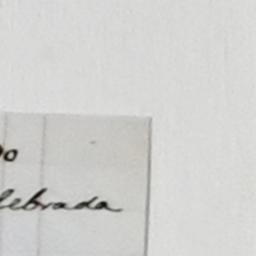 do
lebrada